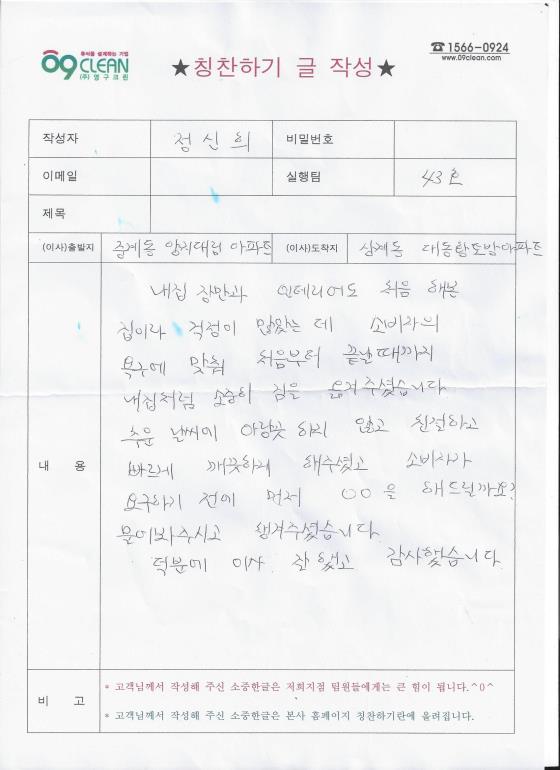 휴식을 설계하는 기업
09 CLEAN
(주)영구크린
★칭찬하기 글 작성★
☎ 1566-0924
www.09clean.com
작성자 정신희 비밀번호
이메일 실행팀 43호
제목
(이사)출발지 중계동 양지대림 아파트 (이사)도착지 상계동 대동황토방아파트
내 용
내집 장만과 인테리어도 처음 해본
집이라 걱정이 많았는데 소비자의
욕구에 맞춰 처음부터 끝날때까지
내집처럼 소중히 짐을 옮겨주셨습니다
추운 날씨에 아랑곳 하지 않고 친절하고
빠르게 깨끗하게 해주셨고 소비자가
요구하기 전에 먼저 ○○을 해드릴까요?
물어봐주시고 챙겨주셨습니다
덕분에 이사 잘 했고 감사했습니다
비 고
* 고객님께서 작성해 주신 소중한글은 저희지점 팀원들에게는 큰 힘이 됩니다.^0^
* 고객님께서 작성해 주신 소중한글은 본사 홈페이지 칭찬하기란에 올려집니다.